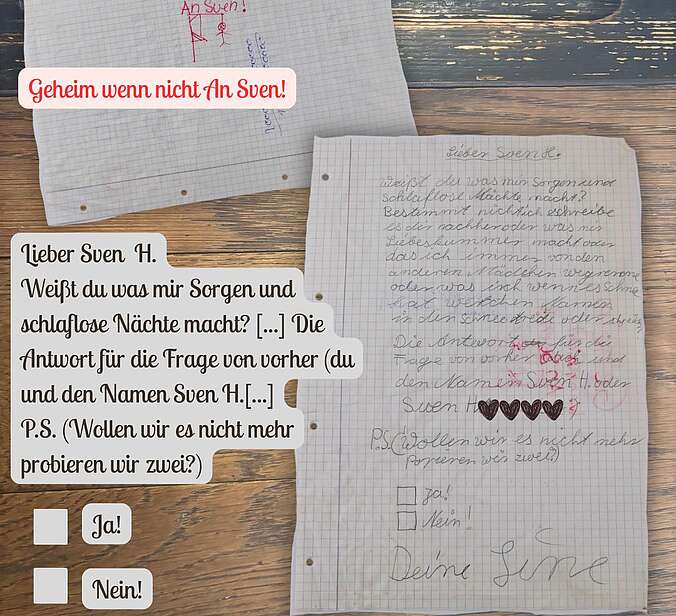 An Sven!
Geheim wenn nicht An Sven!
Lieber Sven H.
Weißt du was mir Sorgen und
schlaflose Nächte macht? [...] Die
Antwort für die Frage von vorher (du
und den Namen Sven H.[...]
P.S. (Wollen wir es nicht mehr
probieren wir zwei?)
Ja!
Nein!
Lieber Sven H.
Weißt du was mir Sorgen und
schlaflose Nächte macht?
Bestimmt nicht ich schreibe
es dir nachher oder was mir
Liebeskummer macht oder
das ich immer von den
anderen Mädchen wegrenne
oder was ich wenn es Schnee
hat welchen Namen
in den Schnee oder
Die Antwort für die
Frage von vorher und
den Namen Sven H. oder
Sven H
P.S. (Wollen wir es nicht mehr
wir zwei?)
Ja!
Nein!
Deine